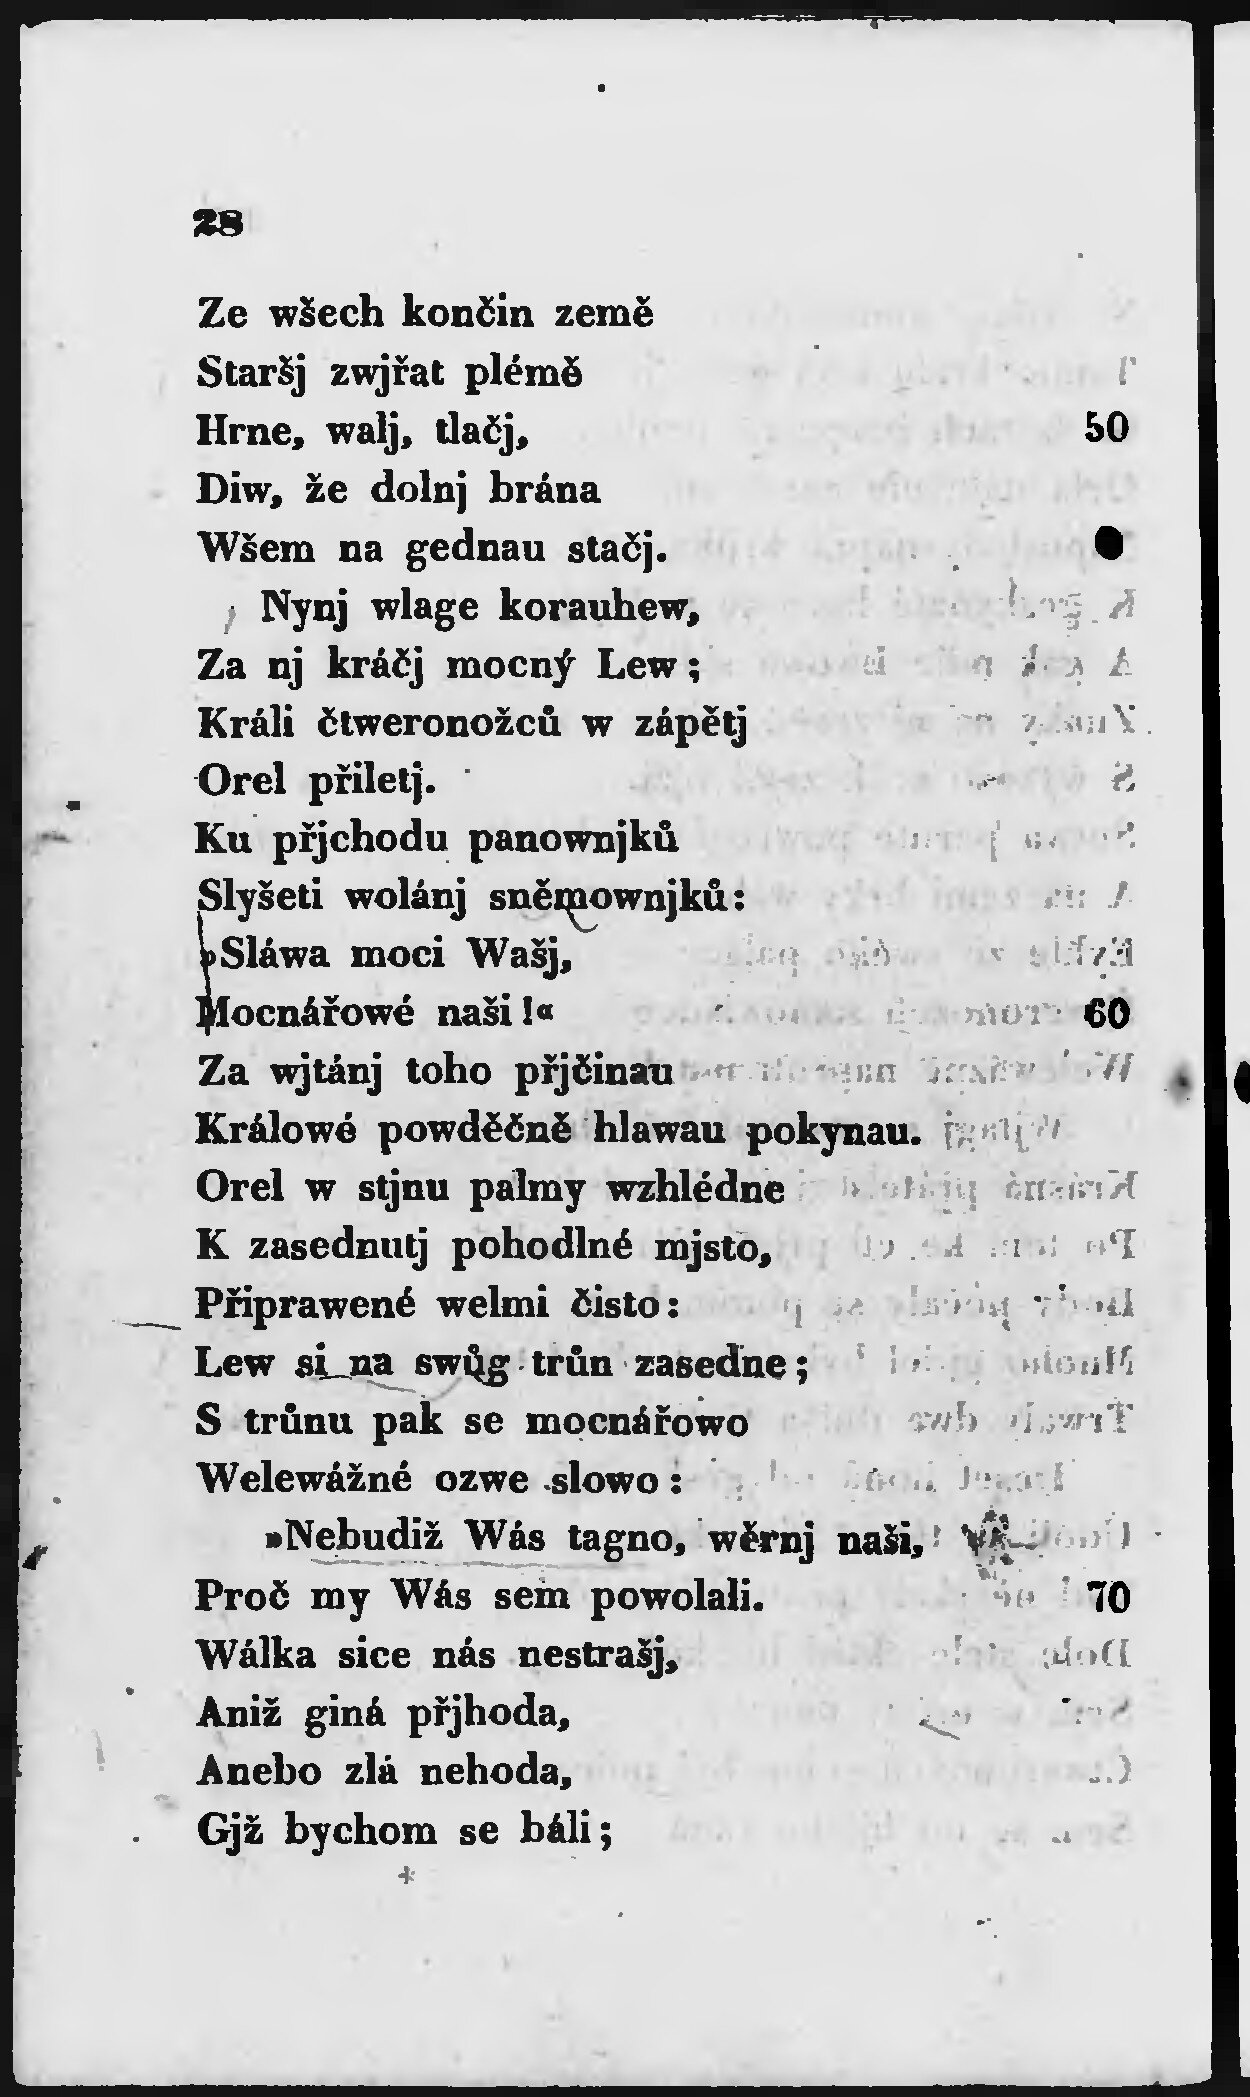 28
Ze wšech končin země
Staršj zwjřat plémě
Hrne, walj, tlačj, 50
Diw, že dolnj brána
Wšem na gednau stačj.
Nynj wlage korauhew,
Za nj kráčj mocný Lew;
Králi čtweronožců w zápětj
Orel přiletj.
Ku přjchodu panownjků
Slyšeti wolánj sněmownjků:
»Sláwa moci Wašj,
Mocnářowé naši!« 60
Za wjtánj toho přjčinau
Králowé powděčně hlawau pokynau.
Orel w stjnu palmy wzhlédne
K zasednutj pohodlné mjsto,
Připrawené welmi čisto:
Lew si na swůg trůn zasedne;
S trůnu pak se mocnářowo
Welewážné ozwe slowo:
»Nebudiž Wás tagno, wěrnj naši,
Proč my Wás sem powolali. 70
Wálka sice nás nestrašj,
Aniž giná přjhoda,
Anebo zlá nehoda,
Gjž bychom se báli;